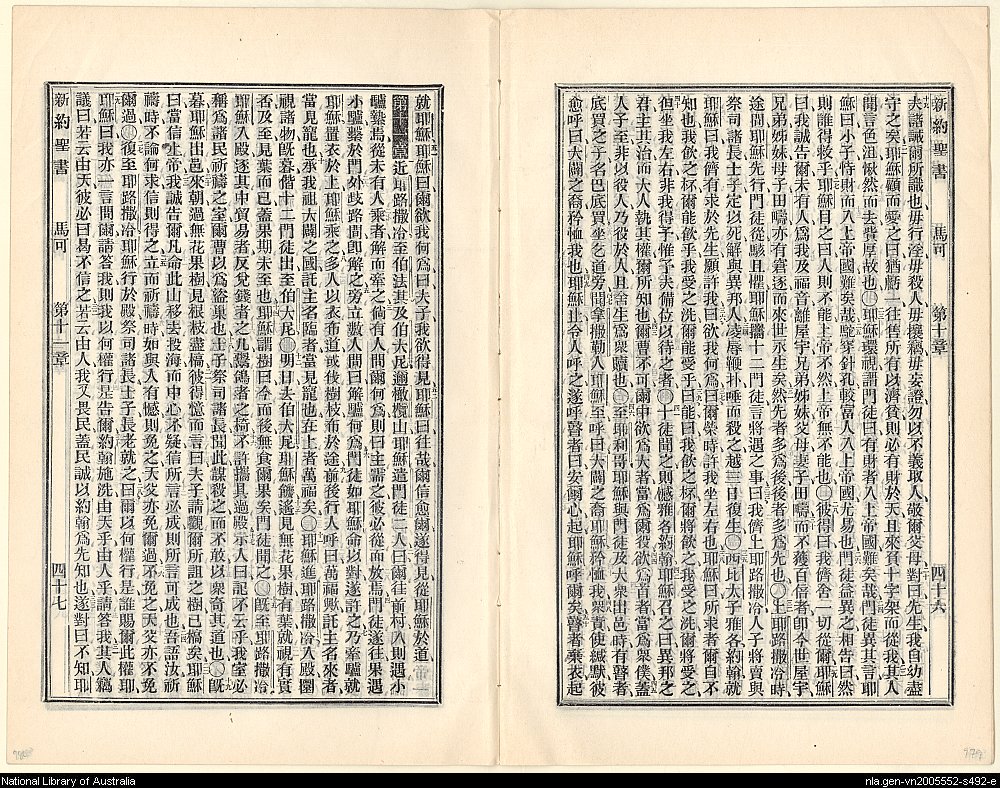 新約聖書 馬可 第十章 四十六
夫諸誡爾所識也毋行淫毋殺人毋攘竊毋妄證勿以不義取人敬爾父母對曰先生我自幼盡
守之矣耶穌顧而愛之曰猶虧一往售所有以濟貧則必有財於天且來負十字架而從我其人
聞言色沮愀然而去貲厚故也耶穌環視謂門徒曰有財者入上帝國難矣哉門徒異其言耶
穌曰小子恃財而入上帝國難矣哉駝穿針孔較富人入上帝國尤易也門徒益異之相告曰然
則誰得救乎耶穌目之曰人則不能上帝不然上帝無不能也彼得曰我儕舍一切從爾耶穌
曰我誠告爾未有人爲我及福音離屋宇兄弟姊妹父母妻子田疇而不獲百倍者卽今世屋宇
兄弟姊妹母子田疇亦有窘逐而來世永生矣然先者多爲後後者多爲先也上耶路撒冷時
途間耶穌先行門徒從駭且懼耶穌攜十二門徒言將遇之事曰我儕上耶路撒冷人子將賣與
祭司諸長士子定以死解與異邦人凌辱鞭扑唾而殺之越三日復生西比太子雅各約翰就
耶穌曰我儕有求於先生願許我曰欲我何爲曰爾榮時許我坐左右也耶穌曰所求者爾自不
知也我飲之杯爾能飲乎我受之洗爾能受乎曰能曰我飲之杯爾將飲之我受之洗爾將受之
但坐我左右非我得予惟予夫備位以待之者十徒聞之則憾雅各約翰耶穌召之曰異邦之
君主其治而大人執其權爾所知也爾曹不可爾中欲爲大者當爲爾役欲爲首者當爲衆僕蓋
人子至非以役人乃役於人且舍生爲衆贖也至耶利哥耶穌與門徒及大衆出邑時有瞽者
底買之子名巴底買坐乞道旁聞拿撒勒人耶穌至呼曰大闢之裔耶穌矜恤我衆責使緘默彼
愈呼曰大闢之裔矜恤我也耶穌止令人呼之遂呼瞽者曰安爾心起耶穌呼爾矣瞽者棄衣起
就耶穌耶穌曰爾欲我何爲曰夫子我欲得見耶穌曰往哉爾信愈爾遂得見從耶穌於道
第十一章近耶路撒冷至伯法其及伯大尼邇橄欖山耶穌遣門徒二人曰爾往前村入則遇小
驢縶焉從未有人乘者解而牽之倘有人問爾何爲則曰主需之彼必從而放焉門徒遂往果遇
小驢繫於門外歧路間卽解之旁立數人問曰解驢何爲門徒如耶穌命以對遂許之乃牽驢就
耶穌置衣於上耶穌乘之多人以衣布道或伐樹枝布於途前後行人呼曰萬福歟託主名來者
當見寵也承我祖大闢之國託主名臨者當見寵也在上者萬福矣耶穌進耶路撒冷入殿圜
視諸物旣暮偕十二門徒出至伯大尼明日去伯大尼耶穌饑遙見無花果樹有葉就視有實
否及至見葉而已蓋果期未至也耶穌謂樹曰今而後無食爾果矣門徒聞之旣至耶路撒冷
耶穌入殿逐其中貿易者反兌錢者之几鬻鴿者之椅不許攜具過殿示人曰記不云乎我室必
稱爲諸民祈禱之室爾曹以爲盜巢也士子祭司諸長聞此謀殺之而不敢以衆奇其道也旣
暮耶穌出邑來朝過無花果樹見根枝盡槁彼得憶而言曰夫子請觀爾所詛之樹已槁矣耶穌
曰當信上帝我誠告爾凡命此山移去投海而中心不疑信所言必成則所言可成也吾語汝祈
禱時不論何求信則得之立而祈禱時如與人有憾則免之天父亦免爾過不免之天父亦不免
爾過復至耶路撒冷耶穌行於殿祭司諸長士子長老就之曰爾以何權行是誰賜爾此權耶
耶穌曰我亦一言問爾請答我則我以何權行是告爾約翰施洗由天乎由人乎請答我其人竊
議曰若云由天彼必曰曷不信之若云由人我又畏民蓋民誠以約翰爲先知也遂對曰不知耶
新約聖書 馬可 第十一章 四十七
National Library of Australia
nla.gen-vn2005552-s492-e